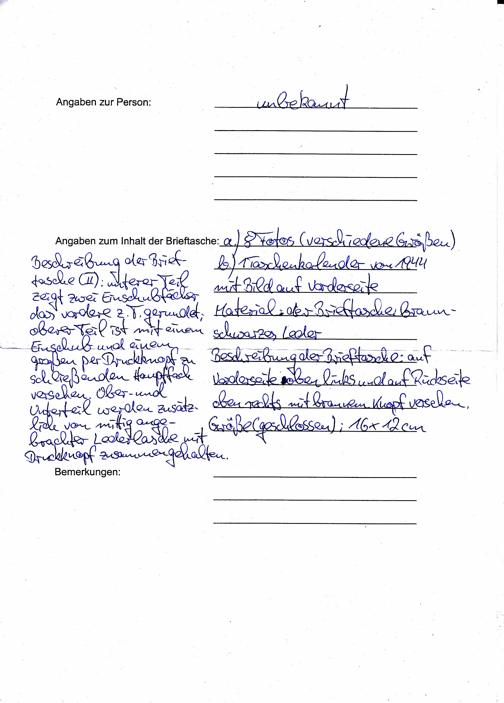 Angaben zur Person: unbekannt
Angaben zum Inhalt der Brieftasche: a.) 8 Fotos (verschiedene Größen)
b.) Taschenkalender von 1944
mit Bild auf Vorderseite
Material der Brieftasche: Braun-
schwarzes Leder
Beschreibung der Brieftasche: auf
Vorderseite oben links und auf Rückseite
oben rechts mit braunem Knopf versehen.
Größe (geschlossen): 16 x 12 cm
Beschreibung der Brief-
tasche (II): unterer Teil
zeigt zwei Einschubfächer
das vordere z.T. gerundet;
oberer Teil ist mit einem
Einschub und einem
großen per Druckknopf zu
schließenden Hauptfach
versehen. Ober- und
Unterteil werden zusätz-
lich von mittig ange-
brachter Lederlasche mit
Druckknopf zusammengehalten.
Bemerkungen: